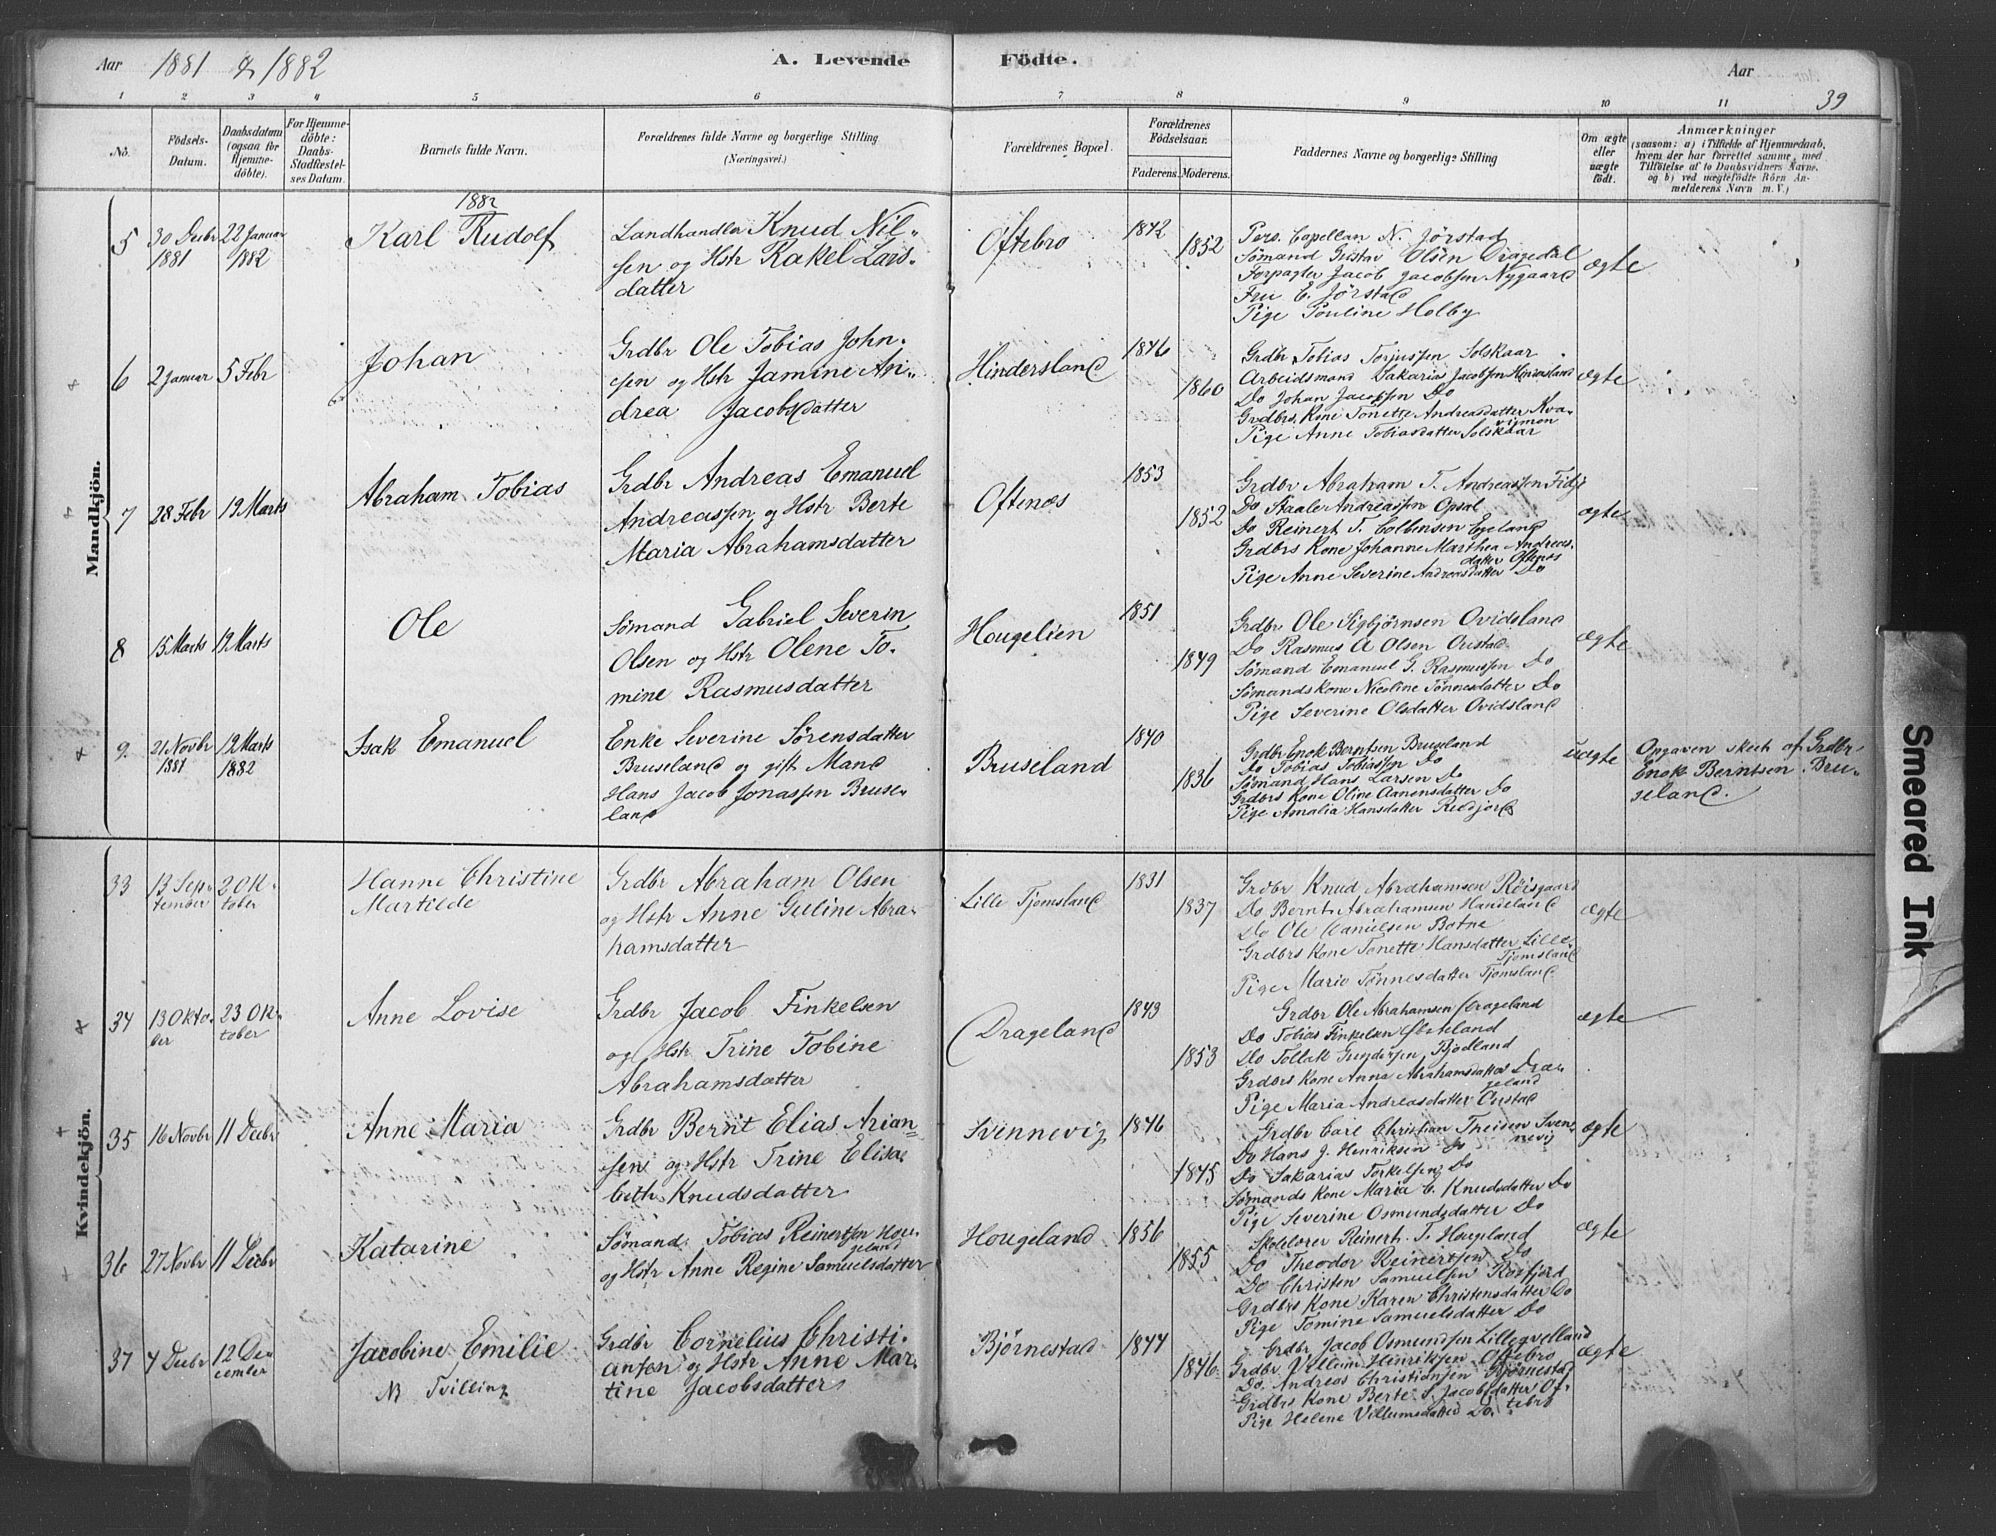 Aar 1881 & 1882 A. Levende Födte. Aar
39
1 2 3 4 5 6 7 8 9 10 11
No. Födsels-Datum. Daabsdatum (ogsaa for Hjemmedöbte). For Hjemmedöbte: Daabs-Stadfæstelses Datum. Barnets fulde Navn. Forældrenes fulde Navne og borgerlige Stilling (Næringsvei.) Forældrenes Bopæl. Forældrenes Födselsaar. Faderens. Moderens. Faddernes Navne og borgerlige Stilling Om ægte eller uægte födt. Anmærkninger (saasom: a) i Tilfælde af Hjemmedaab, hvem der har forrettet samme, med Tilföielse af to Daabsvidners Navne, og b) ved uægtefödte Börn Anmelderens Navn m. V.)
Mandkjön.
1882
5 30 Decbr 1881 22 Januar 1882 Karl Rudolf
Landhandler Knud Nil-
sen og Hstr Rakel Lars-
datter
Oftebro 1842 1852
Pers. Capellan N. Jörstad
Sömand Gustav Olsen Dragedal
Forpagter Jacob Jacobsen Nygaard
Fru E. Jörstad
Pige Pouline Holby
ægte
6 2 Januar 5 Febr Johan
Grdbr Ole Tobias John-
sen og Hstr Jamine An-
drea Jacobsdatter
Hindersland 1846 1860
Grdbr Tobias Torjussen Solskaar
Arbeidsmand Sakarias Jacobsen Hindersland
Do Johan Jacobsen Do
Grdbrs Kone Tonette Andreasdatter Kva-
vigmon
Pige Anne Tobiasdatter Solskaar
ægte
7 28 Febr 19 Marts Abraham Tobias
Grdbr Andreas Emanuel
Andreassen og Hstr Berte
Maria Abrahamsdatter
Oftenæs 1853 1852
Grdbr Abraham T. Andreassen Fidje
Do Staale Andreassen Opsal
Do Reinert T. Colbensen Egeland
Grdbrs Kone Johanne Marthea Andreas-
datter Oftenæs
Pige Anne Severine Andreasdatter Do
ægte
8 15 Marts 19 Marts Ole
Sömand Gabriel Severin
Olsen og Hstr Olene To-
mine Rasmusdatter
Hougelien 1851 1849
Grdbr Ole Sigbjörnsen Ovidsland
Do Rasmus A Olsen Oustad
Sömand Emanuel G. Rasmussen Do
Sömands Kone Nicoline Tönnesdatter Do
Pige Severine Olsdatter Ovidsland
ægte
9 21 Novbr 1881 12 Marts 1882 Isak Emanuel
Enke Severine Sörensdatter
Bruseland og gift Mand
Hans Jacob Jonassen Bruse-
land
Bruseland 1840 1836
Grdbr Enok Berntsen Bruseland
Do Tobias Tobiassen Do
Sömand Hans Larsen Do
Grdbrs Kone Oline Aanensdatter Do
Pige Amalia Hansdatter
uægte
Opgaven skeet af Grdbr
Enok Berntsen Bru-
seland.
Kvindekjön.
33 13 September 2 Oktober Hanne Christine
Martilde
Grdbr Abraham Olsen
og Hstr Anne Guline Abra-
hamsdatter
Lille Tjomsland 1831 1837
Grdbr Knud Abrahamsen Röisgaard
Do Bernt Abrahamsen Handeland
Do Ole Danielsen Botne
Grdbrs Kone Tonette Hansdatter Lille-
Tjomsland
Pige Marie Tönnesdatter Tjomsland
ægte
34 13 Oktober 23 Oktober Anne Lovise
Grdbr Jacob Finkelsen
og Hstr Trine Tobine
Abrahamsdatter
Drageland 1843 1853
Grdbr Ole Abrahamsen Drageland
Do Tobias Finkelsen
Do Tollak Gundersen Bjodland
Grdbrs Kone Anna Abrahamsdatter Dra-
geland
Pige Maria Andreasdatter Oustad
ægte
35 16 Novbr 11 Decbr Anne Maria
Grdbr Bernt Elias Arian-
sen og Hstr Trine Elisa-
beth Knudsdatter
Svennevig 1846 1845
Grdbr Carl Christian Theisen Sven-
nevig
Do Hans J. Henriksen Do
Do Sakarias Torkelsen Do
Sömands Kone Maria C. Knudsdatter Do
Pige Severine Osmundsdatter Do
ægte
36 27 Novbr 11 Decbr Katarine
Sömand Tobias Reinertsen Hou-
geland
og Hstr Anne Regine Samuelsdatter
Hougeland 1856 1855
Skolelærer Reinert T. Hougeland
Do Theodor Reinertsen Do
Do Christen Samuelsen Rosfjord
Grdbrs Kone Karen Christensdatter Do
Pige Tomine Samuelsdatter Do
ægte
37 4 Decbr 12 December Jacobine Emilie
NB Tvilling
Grdbr Cornelius Christi-
ansen og Hstr Anne Mar-
tine Jacobsdatter
Bjørnestad 1844 1846
Grdbr Jacob Osmundsen Lilleqvelland
Grdbr Villum Henriksen Oftebro
Do Andreas Christiansen Bjørnestad
Grdbrs Kone Berte S. Jacobsdatter Of-
tebro
Pige Helene Villumsdatter Do
ægte
Smeared Ink